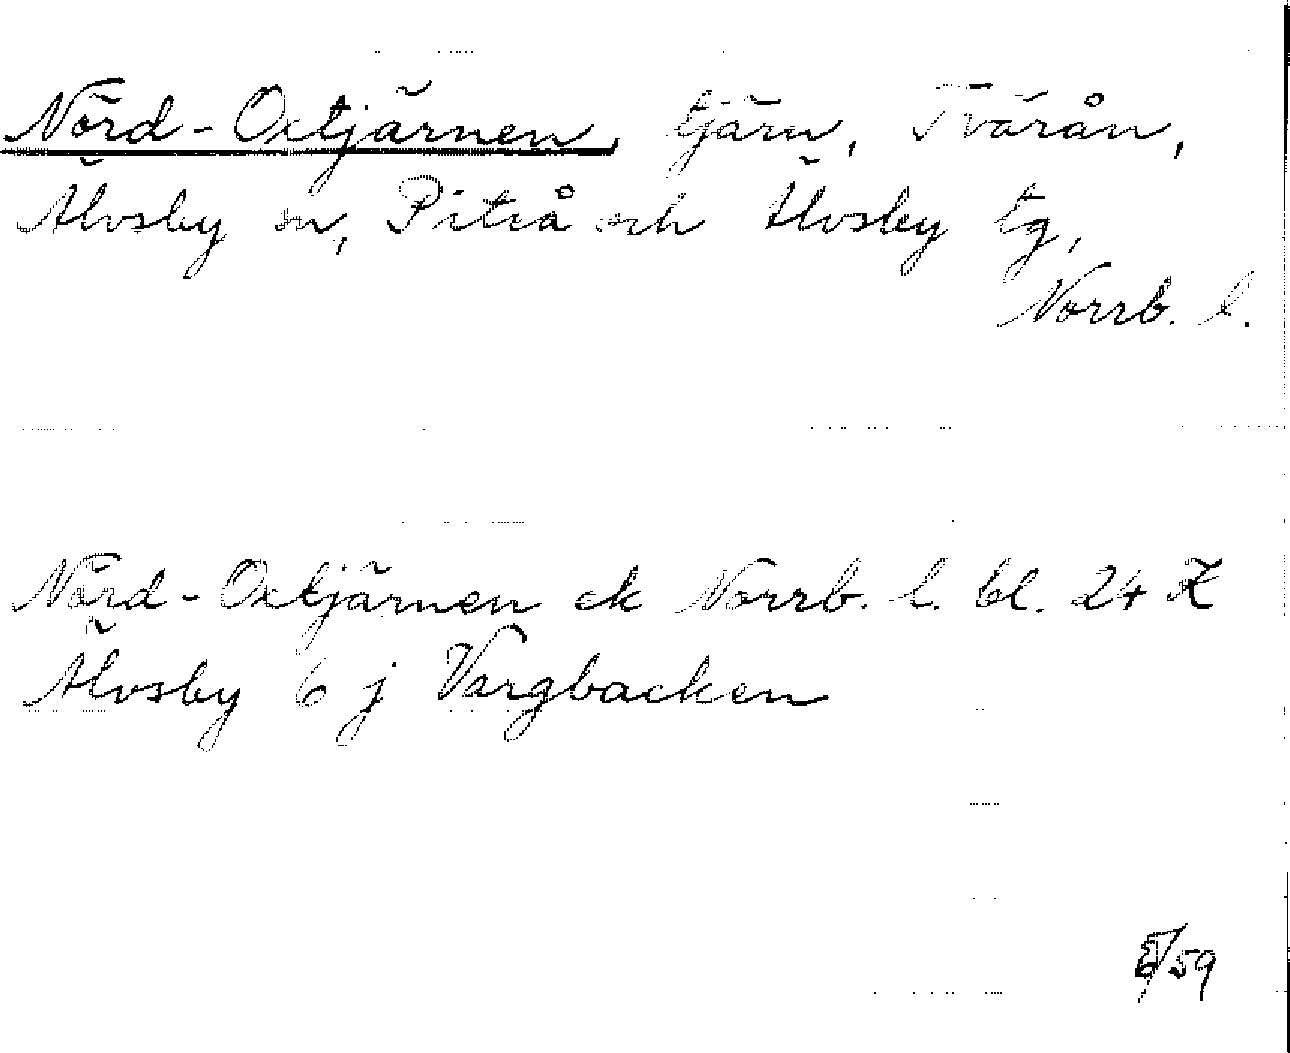 Nörd-Oxtjärnen, tjärn, Tvärån,
Älvsby sn, Piteå och Älvsby tg,
Norrb. l.
Nörd-Oxtjärnen ek Norrb. l. bl. 24 K
Älvsby 6 j Vargbacken
/59